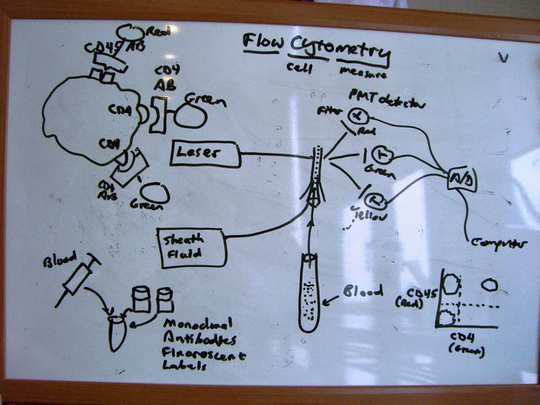 Flow Cytometry
cell measure
V
Red
CD45 AB
CD4
AB
Green
CD4
CD4
CD4
AB
Green
Laser
Sheath
Fluid
PMT detector
Filter
Red
Green
Yellow
A/D
Computer
Blood
Monoclonal
Antibodies
Fluorescent
Labels
Blood
CD45
(Red)
CD4
(Green)